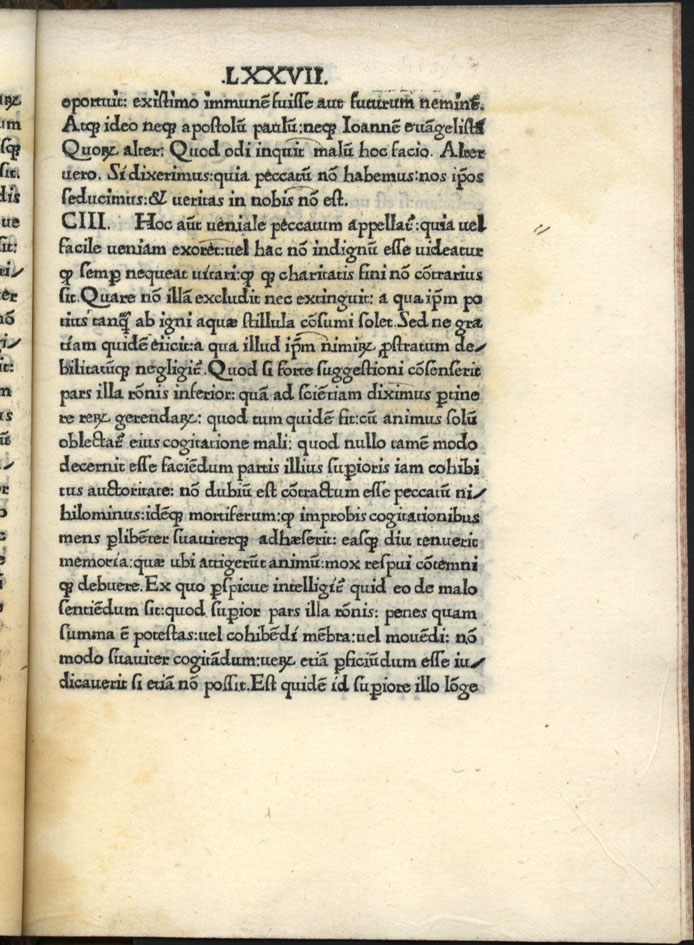 .LXXVII.
oportuit: existimo immunē fuisse aut futurum neminē.
Atqꝫ ideo neqꝫ apostolū paulū:neqꝫ Ioannē euāgelistā
Quoꝝ alter: Quod odi inquit malū hoc facio. Alter
uero. Si dixerimus:quia peccatū nō habemus:nos ip̄os
seducimus:& ueritas in nobis nō est.
CIII. Hoc aūt ueniale peccatum appellat᷑:quia uel
facile ueniam exoret:uel hac nō indignū esse uideatur
ꝙ semꝑ nequeat uitari:ꝙ ꝙ charitatis fini nō cōtrarius
sit.Quare nō illā excludit nec extinguit: a qua ip̄m po
tius tanꝙ̄ ab igni aquæ stillula cōsumi solet.Sed ne gra
tiam quidē eiicit:a qua illud ip̄m nimiꝝ ꝓstratum de⸗
bilitatūqꝫ negligit᷑.Quod si forte suggestioni cōsenserit
pars illa rōnis inferior: quā ad sciētiam diximus ꝑtine
re reꝝ gerendaꝝ: quod tum quidē fit:cū animus solū
oblectat᷑ eius cogitatione mali: quod nullo tamē modo
decernit esse faciēdum partis illius suꝑioris iam cohibi
tus auctoritate: nō dubiū est cōtractum esse peccatū ni⸗
hilominus:idēqꝫ mortiferum:ꝙ improbis cogitationibus
mens ꝑlibēter suauiterqꝫ adhæserit: easqꝫ diu tenuerit
memoria:quæ ubi attigerūt animū:mox respui cōtemni
qꝫ debuere.Ex quo ꝑspicue intelligit᷑ quid eo de malo
sentiēdum sit:quod suꝑior pars illa rōnis: penes quam
summa ē potestas:uel cohibēdi mēbra:uel mouēdi: nō
modo suauiter cogitādum:ueꝝ etiā ꝑficiūdum esse iu⸗
dicauerit si etiā nō possit.Est quidē id suꝑiore illo lōge